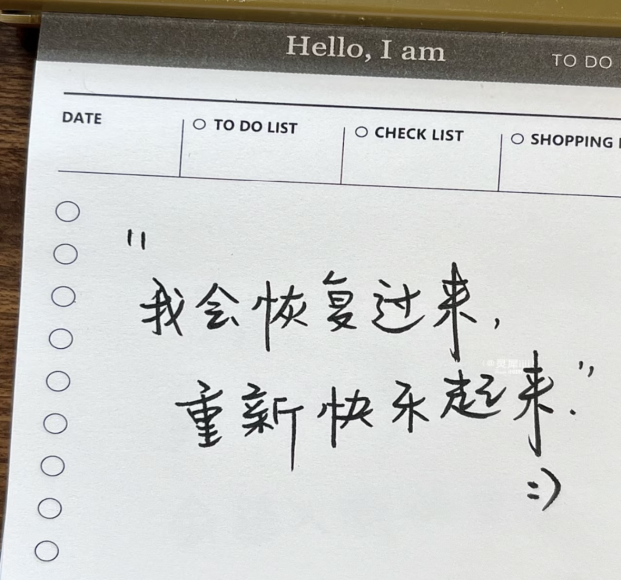 Hello, I am
TO DO
DATE
○ TO DO LIST
○ CHECK LIST
○ SHOPPING
"
我会恢复过来,
重新快乐起来."
:)